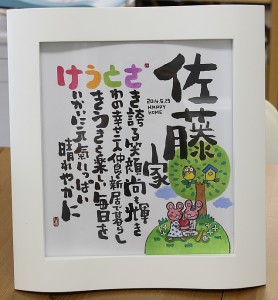 佐藤家
2014.5.29
HAPPY
HOME
さき誇る笑顔尚も輝き
とわの幸せ二人仲良く新居で暮らし
うきうきと楽しい毎日を
けいかいに元氣いっぱい
晴れやかに